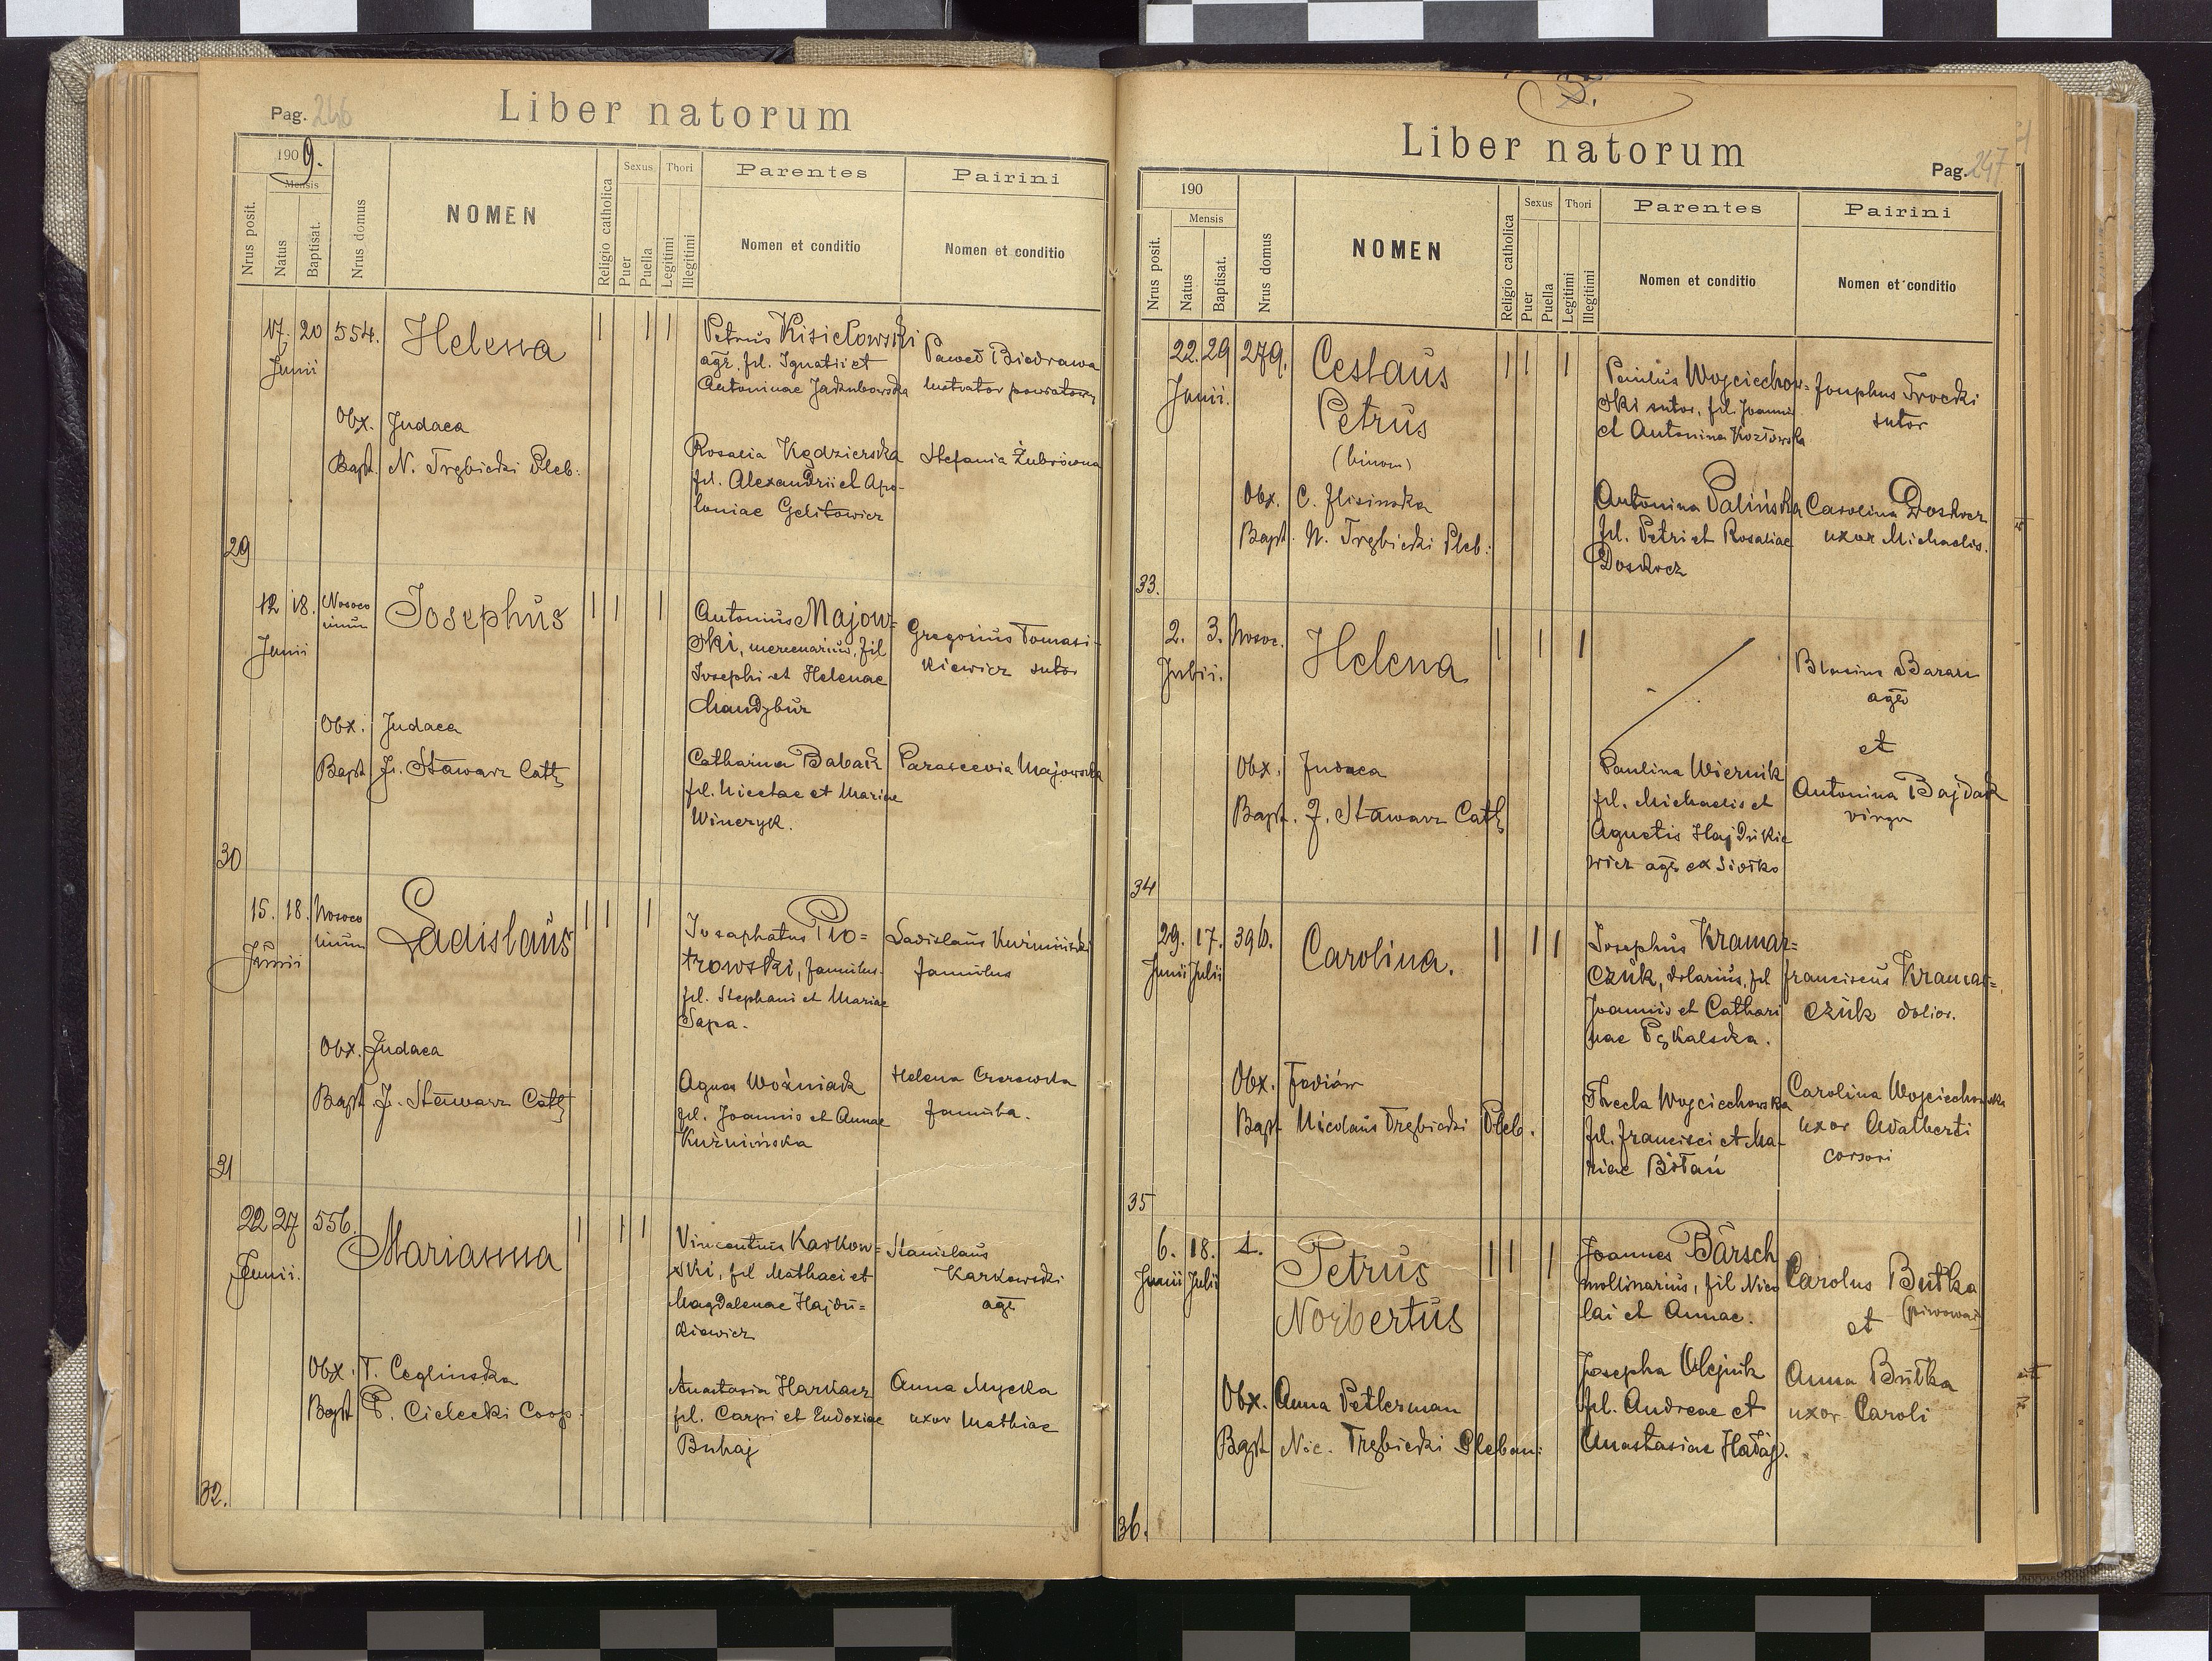 Pag. 246
Liber natorum
1909.
Mensis
Nrus posit.
Natus
Baptisat.
Nrus domus
NOMEN
Religio catholica
Sexus
Puer
Puella
Thori
Legitimi
Illegitimi
Parentes
Nomen et conditio
Pairini
Nomen et conditio
17. 20 554. Helena
Junii
Petrus Kisielowski
agr. fil. Ignatii et
Antoninae Jakubowska
Paweł Biedrawa
lustrator powiatowy
Obx. Judaea
Bapt. N. Trębicki Pleb:
Rosalia Kędzierska
fil. Alexandrii et Apo-
loniae Gelitowicz
Stefania Żubrówna
29
12 18. Nosoco
mium
Josephus
Junii
Antonius Majow=
ski, mercenarius, fil
Josephi et Helenae
Mandzbur
Gregorius Tomasi-
kiewicz sutor
Obx. Judaea
Bapt J. Stawarz Cath
Catharina Babak
fil. Nicetae et Mariae
Winczyk.
Parascevia Majowska
30
15. 18. Nosoco
mium
Ladislaus
Junii
Josaphatus Pio=
trowski, famulus.
fil. Stephani et Mariae
Sapa.
Ladislaus Kuźmiński
famulus
Obx. Judaea
Bapt J. Stawarz Cath
Agnes Woźniak
fil. Joannis et Annae
Kuźmińska
Helena
famula.
31
22 27 556. Marianna
Junii.
Vincentius Karkow=
ski, fil Mathaei et
Magdalenae Hajdu=
kiewicz
Stanislaus
Karkowski
agr
Obx. T. Ceglinska
Bapt P. Cielecki Coop.
Anastasia Harkacz
fil. Carpi et Eudoxiae
Buhaj
Anna Mycka
uxor Mathiae
32.
Liber natorum
Pag. 247
190
Mensis
Nrus posit.
Natus
Baptisat.
Nrus domus
NOMEN
Religio catholica
Sexus
Puer
Puella
Thori
Legitimi
Illegitimi
Parentes
Nomen et conditio
Pairini
Nomen et conditio
22. 29 279. Ceslaus
Junii. Petrus
(binom)
Paulus Wojciechow=
ski sutor, fil. Joannis
et Antonina Kozłowska
Josephus Trocki
sutor
Obx. C. Flisinska
Bapt. N. Trębicki Pleb:
Antonina Palińska
fil. Petri et Rosaliae
Doskocz
Carolina Doskocz
uxor Michaelis.
33.
2. 3. Nosoc. Helena
Julii.
Blasius Baran
agr
et
Obx. Judaea
Bapt. J. Stawarz Cath
Paulina Wiernik
fil. Michaelis et
Agnetis Hajdukie
wicz agr ex Siolko
Antonina Bajdak
virgo
34
29. 17. 396. Carolina.
Junii Julii
Josephus Kramar=
czuk, dolarius, fil
Joannis et Cathari
nae Pękalska.
Franciscus Kramar=
czuk dolior.
Obx. Fediów
Bapt Nicolaus Trębicki Pleb.
Thecla Wojciechowska
fil. Francisci et Ma-
riae Bitań
Carolina Wojciechowska
uxor Adalberti
35
6. 18. 1. Petrus
Junii Julii Norbertus
Joannes Bärsch
mollinarius, fil Nico
lai et Annae.
Carolus Butka
(piwowar)
et
Obx. Anna Petlerman
Bapt Nic. Trębicki Pleban:
Josepha Olejnik
fil. Andreae et
Anastasiae Hałaj.
Anna Butka
uxor Caroli
36.